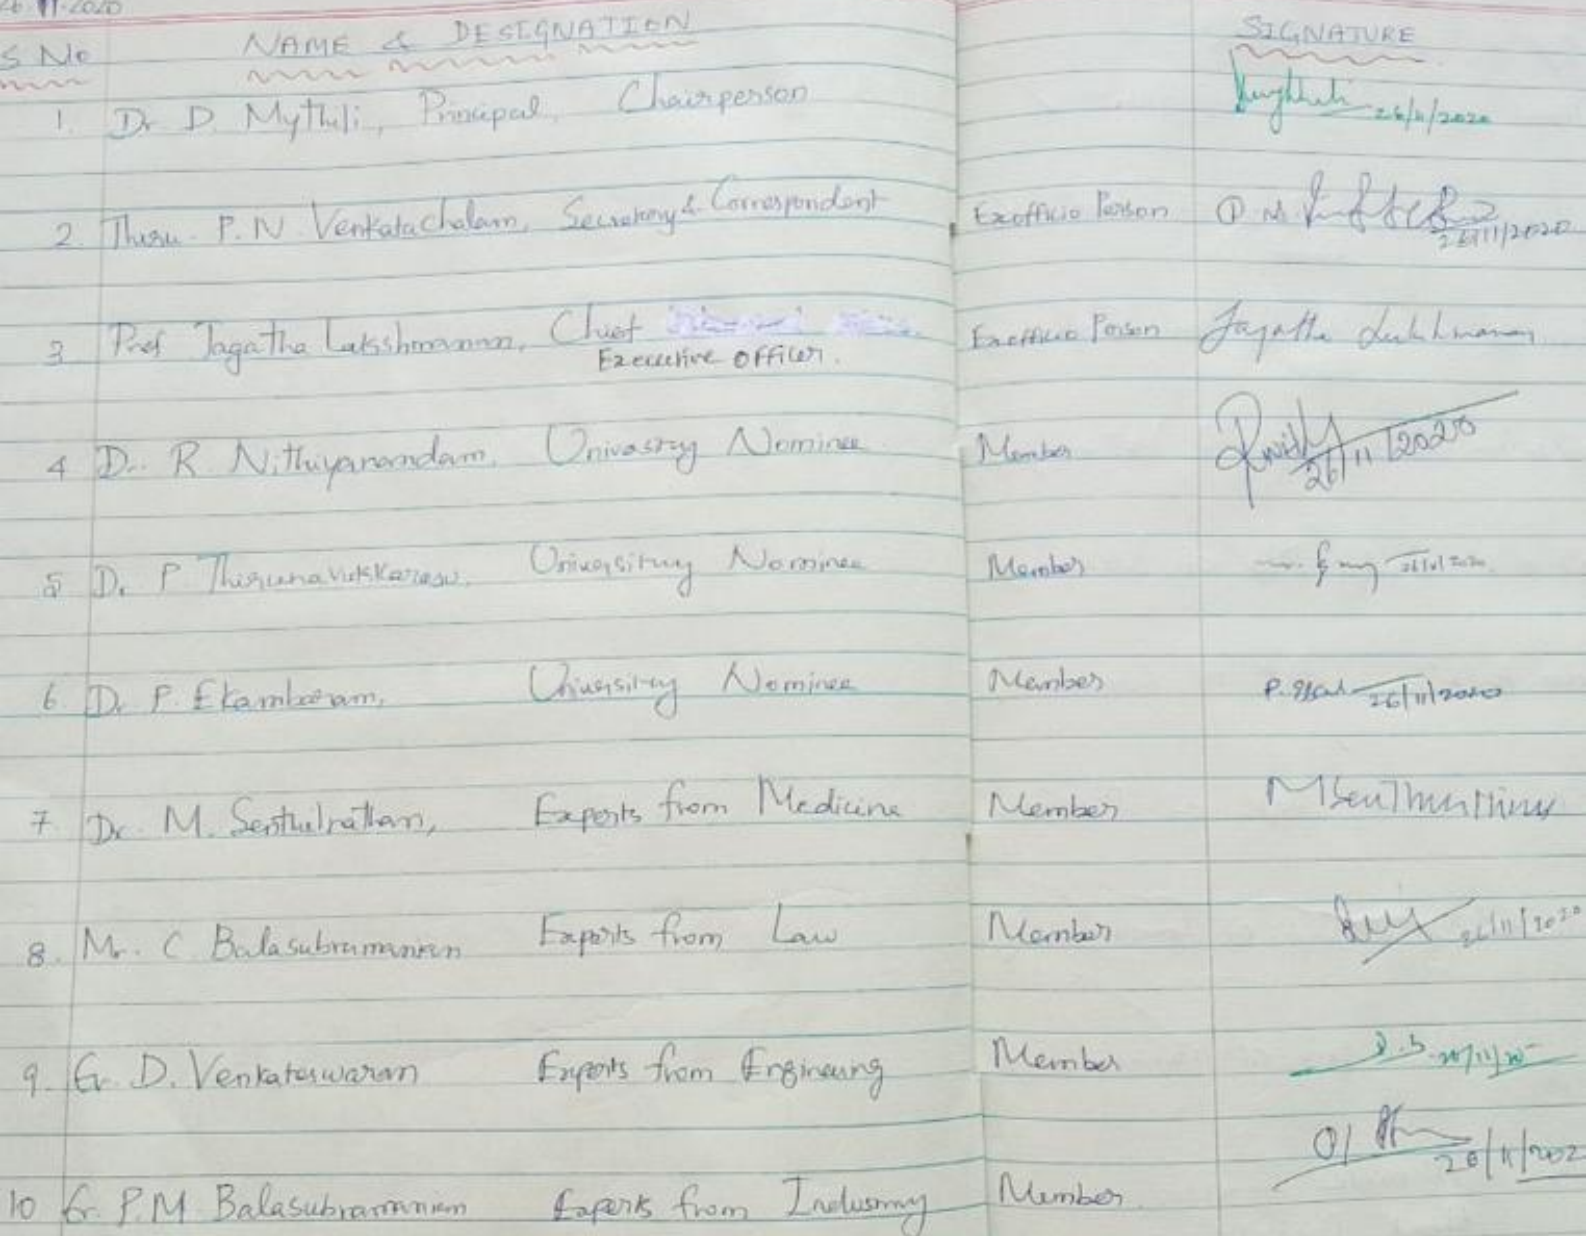 26.11.2020
S No NAME & DESIGNATION SIGNATURE
1. Dr D. Mythili, Principal, Chairperson 26/11/2020
2. Thiru. P.N. Venkatachalam, Secretary & Correspondent Exofficio Person P. N. 26/11/2020
3 Prof Jagatha Lakshmanan, Chief Exofficio Person Jagatha Lakshmanan
Executive Officer.
4 Dr. R Nithiyanandam, University Nominee Member 26/11/2020
5 Dr. P Thirunavukkarasu, University Nominee Member 26/11/2020
6 Dr. P. Ekambaram, University Nominee Member P. 26/11/2020
7 Dr. M. Senthilnathan, Experts from Medicine Member
8. Mr. C. Balasubramanian Experts from Law Member 26/11/2020
9. Er. D. Venkateswaran Experts from Engineering Member
26/11/202
10 Er. P.M. Balasubramaniam Experts from Industry Member